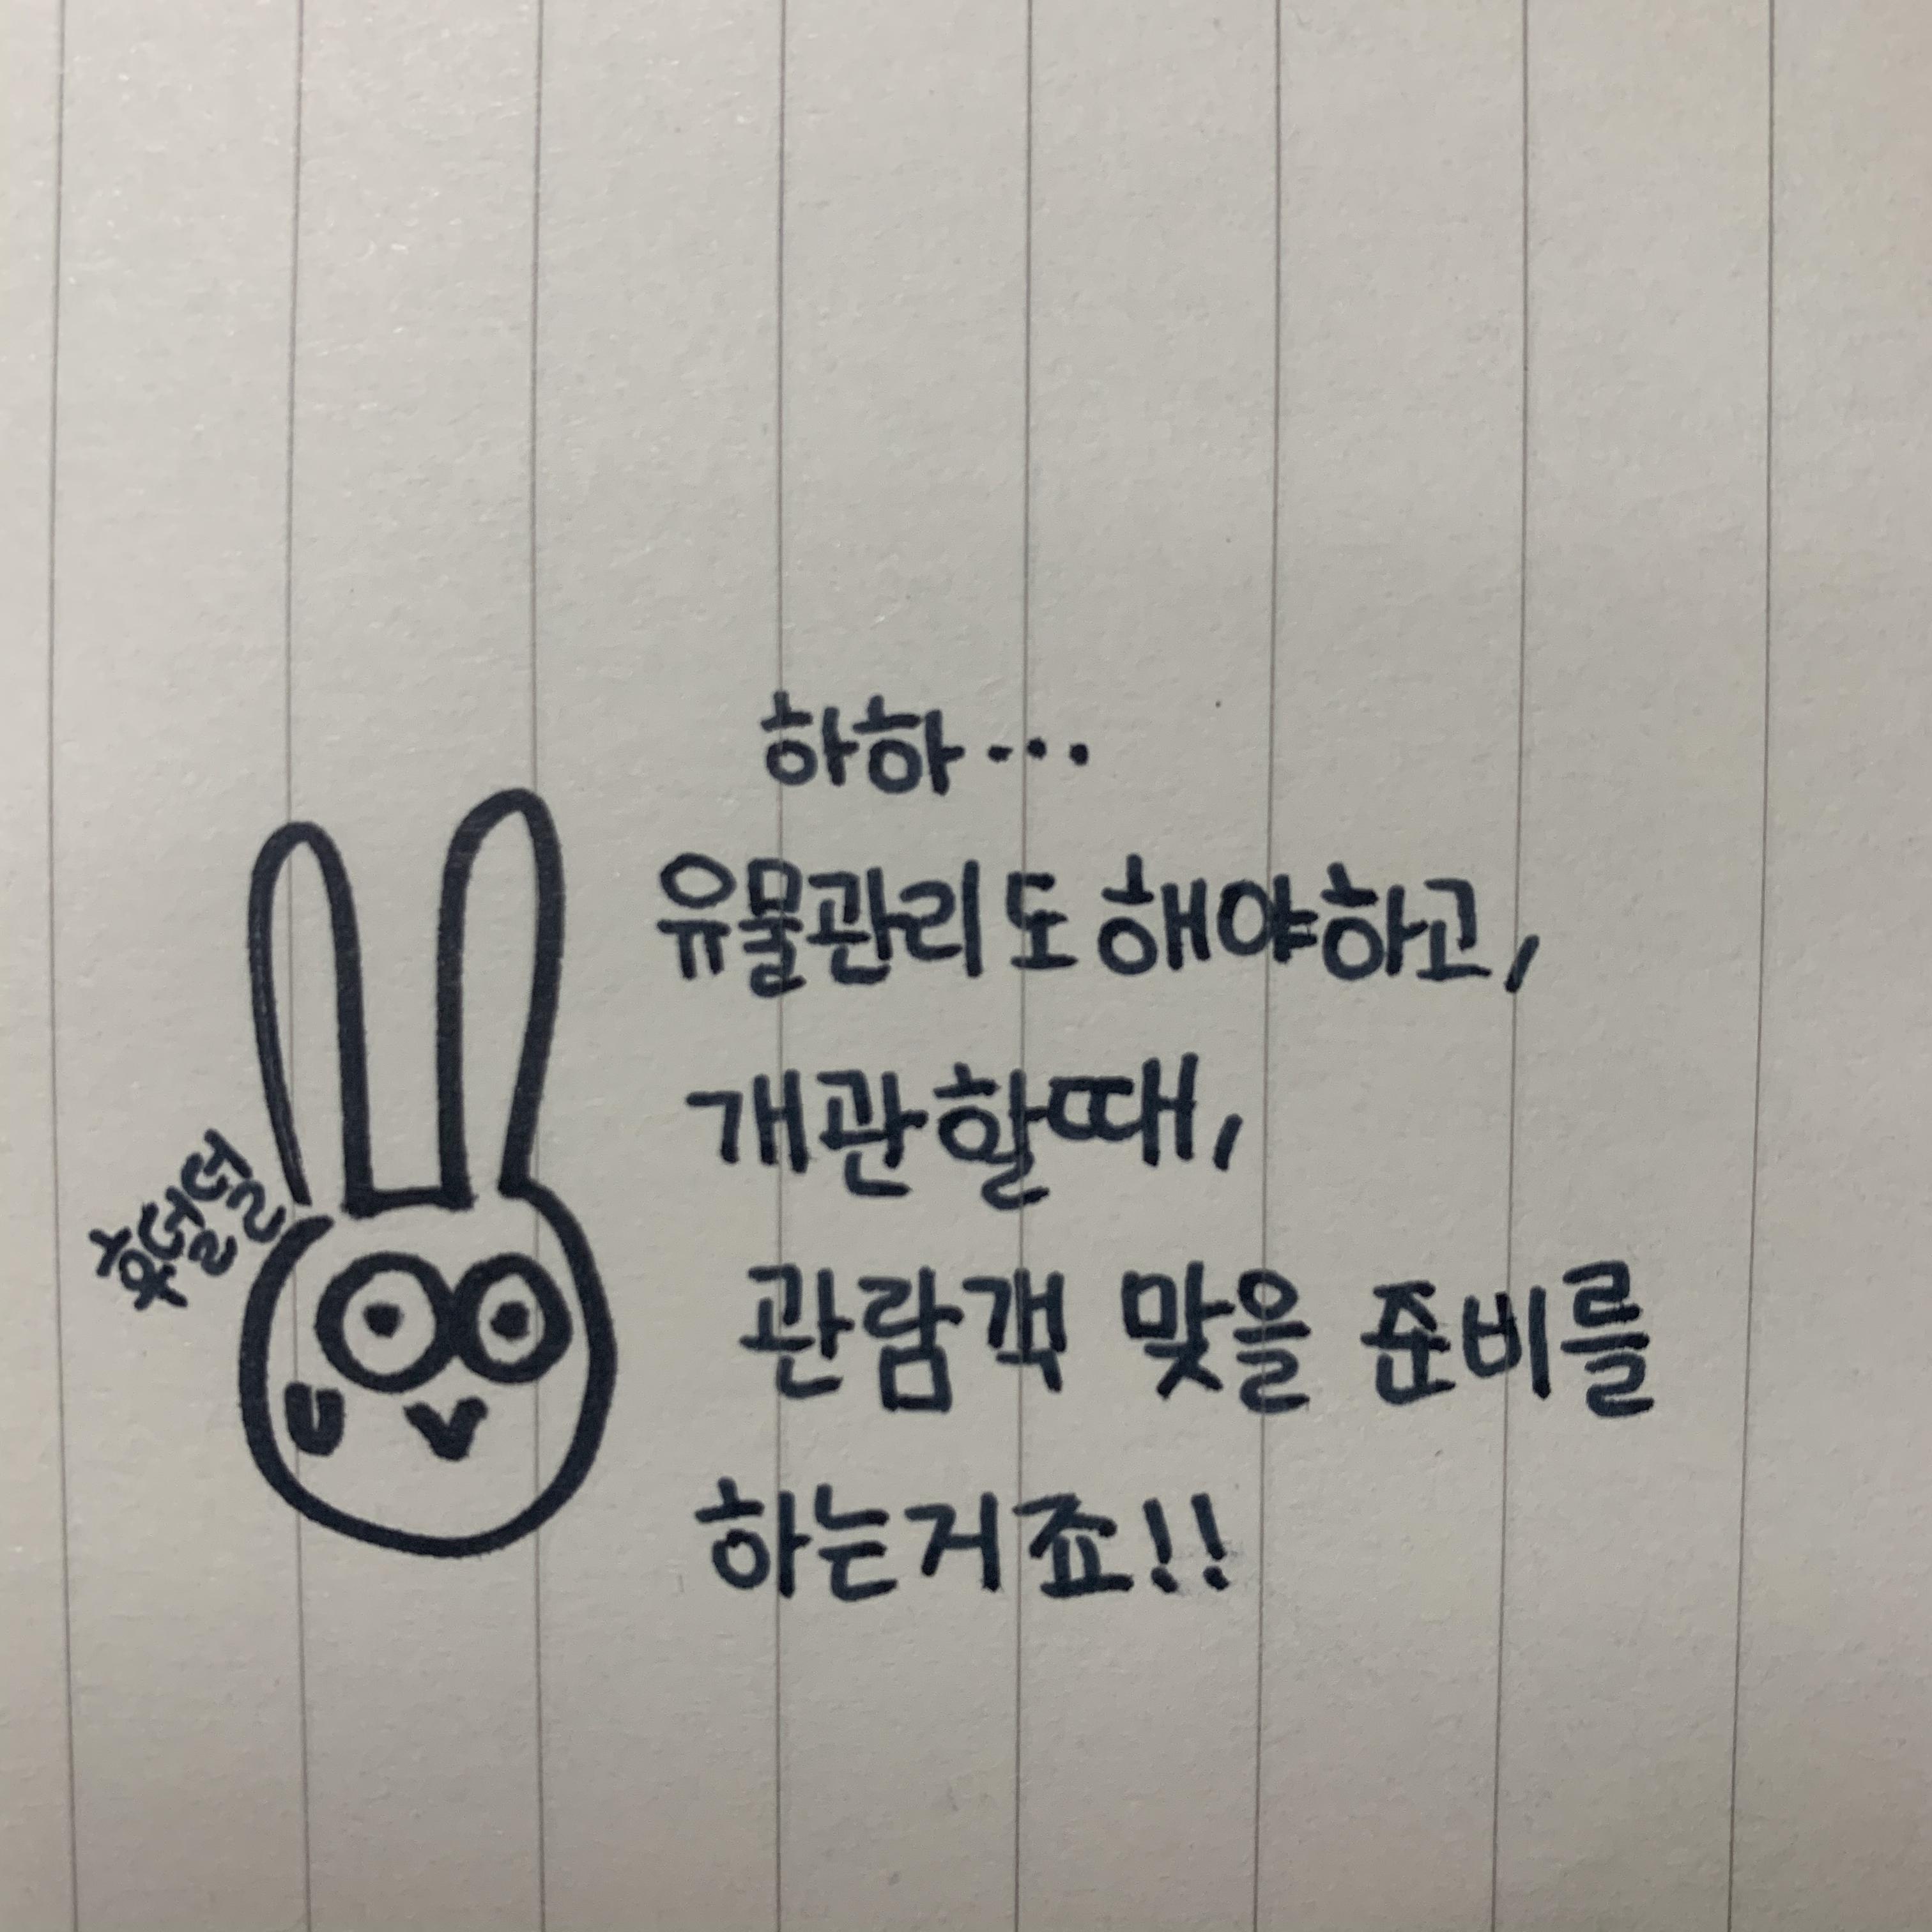 하하...
유물관리도 해야하고,
개관할때,
관람객 맞을 준비를
하는거죠!!
후덜덜